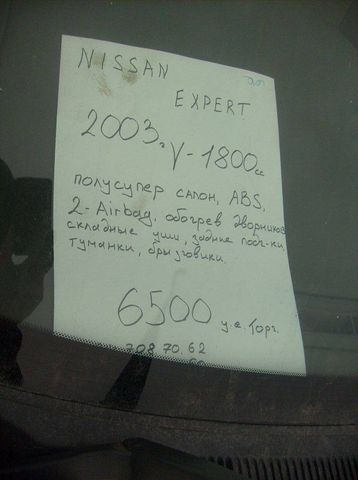 NISSAN
EXPERT
2003г V-1800сс
полусупер салон, ABS,
2-Airbag, обогрев дворников
складные уши, задние подг-ки,
туманки, брызговики.
6500 у.е. Торг.
708 70.62